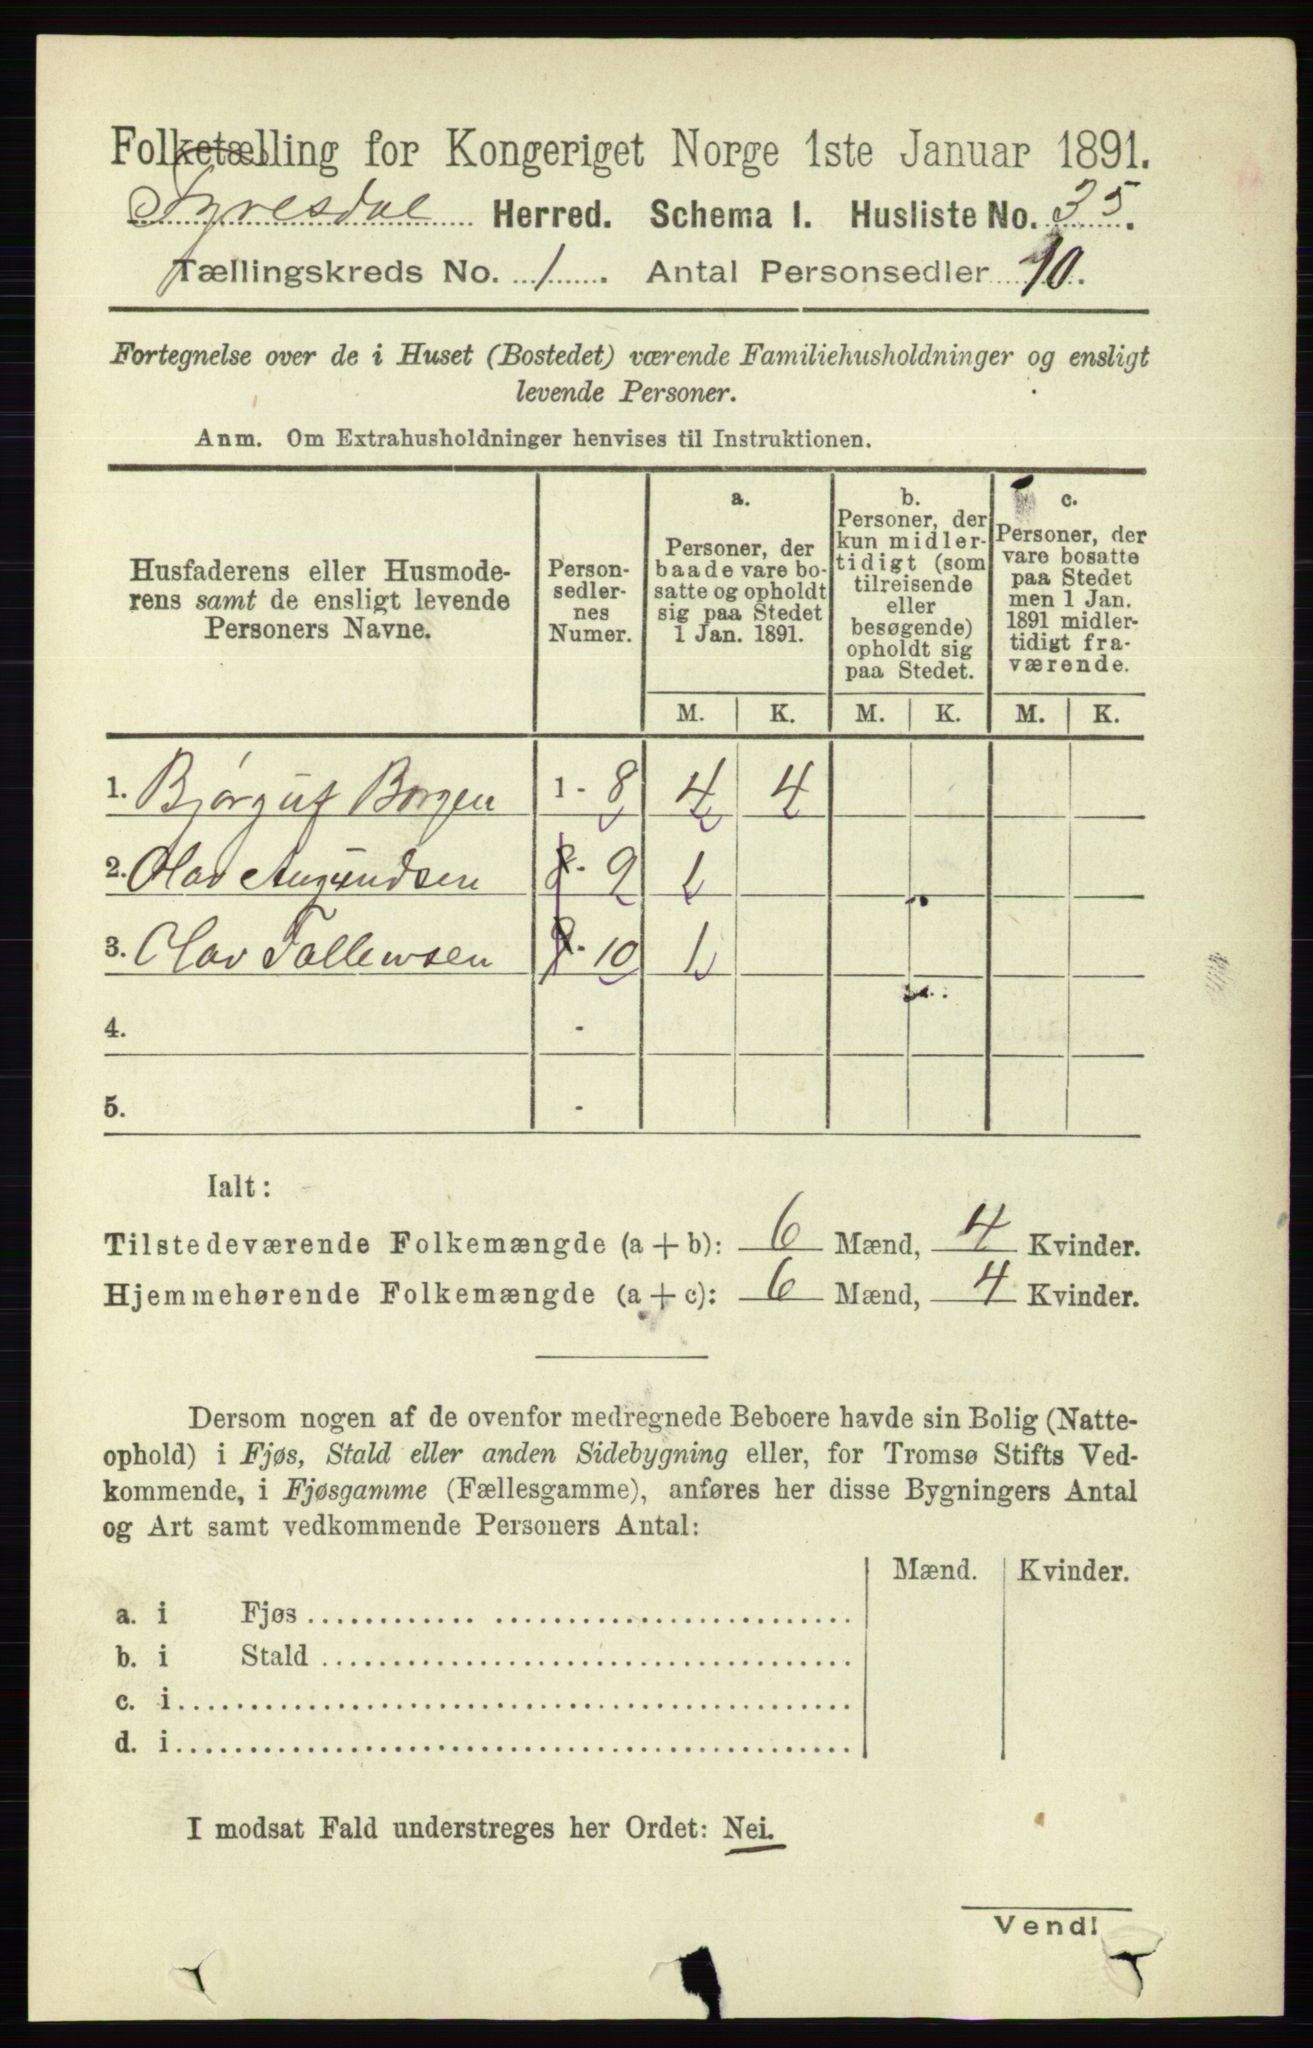 Folketælling for Kongeriget Norge 1ste Januar 1891.
Tyresdal Herred. Schema I. Husliste No. 35.
Tællingskreds No. 1. Antal Personsedler 10.
Fortegnelse over de i Huset (Bostedet) værende Familiehusholdninger og ensligt
levende Personer.
Anm. Om Extrahusholdninger henvises til Instruktionen.
Husfaderens eller Husmode-
rens samt de ensligt levende
Personers Navne.
Person-
sedler-
nes
Numer.
a.
Personer, der
baade vare bo-
satte og opholdt
sig paa Stedet
1 Jan. 1891.
b.
Personer, der
kun midler-
tidigt (som
tilreisende
eller
besøgende)
opholdt sig
paa Stedet.
c.
Personer, der
vare bosatte
paa Stedet
men 1 Jan.
1891 midler-
tidigt fra-
værende.
M. K. M. K. M. K.
1. Bjørguf Borgen 1 - 8 4 4
2. Olav Augundsen - 9 1
3. Olav Tallewsen - 10 1
4. -
5. -
Ialt:
Tilstedeværende Folkemængde (a + b): 6 Mænd, 4 Kvinder.
Hjemmehørende Folkemængde (a + c): 6 Mænd, 4 Kvinder.
Dersom nogen af de ovenfor medregnede Beboere havde sin Bolig (Natte-
ophold) i Fjøs, Stald eller anden Sidebygning eller, for Tromsø Stifts Ved-
kommende, i Fjøsgamme (Fællesgamme), anføres her disse Bygningers Antal
og Art samt vedkommende Personers Antal:
Mænd. Kvinder.
a. i Fjøs
b. i Stald
c. i
d. i
I modsat Fald understreges her Ordet: Nei.
Vend!